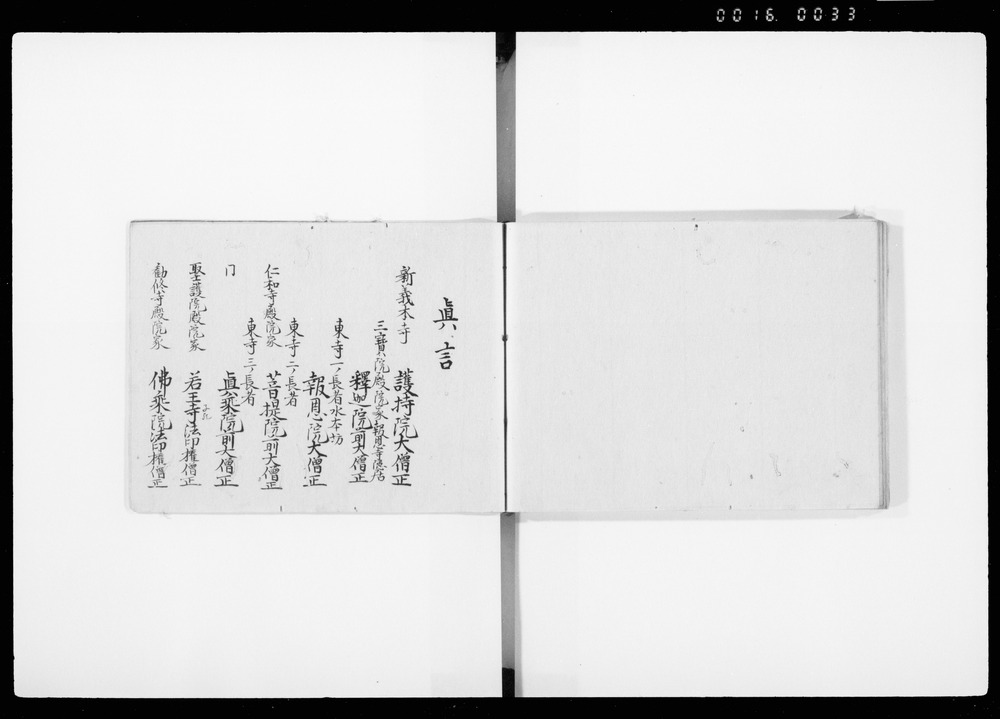 0016. 0033
眞言
新義本寺 護持院大僧正
三寶院殿院家報恩寺隠居
釋迦院前大僧正
東寺一ノ長者水本坊
報恩院大僧正
東寺二ノ長者
仁和寺殿院家 菩提院前大僧正
東寺三ノ長者
同 眞乘院前大僧正
聖護院殿院家 若王寺法印權僧正
勧修寺殿院家 佛乘院法印權僧正